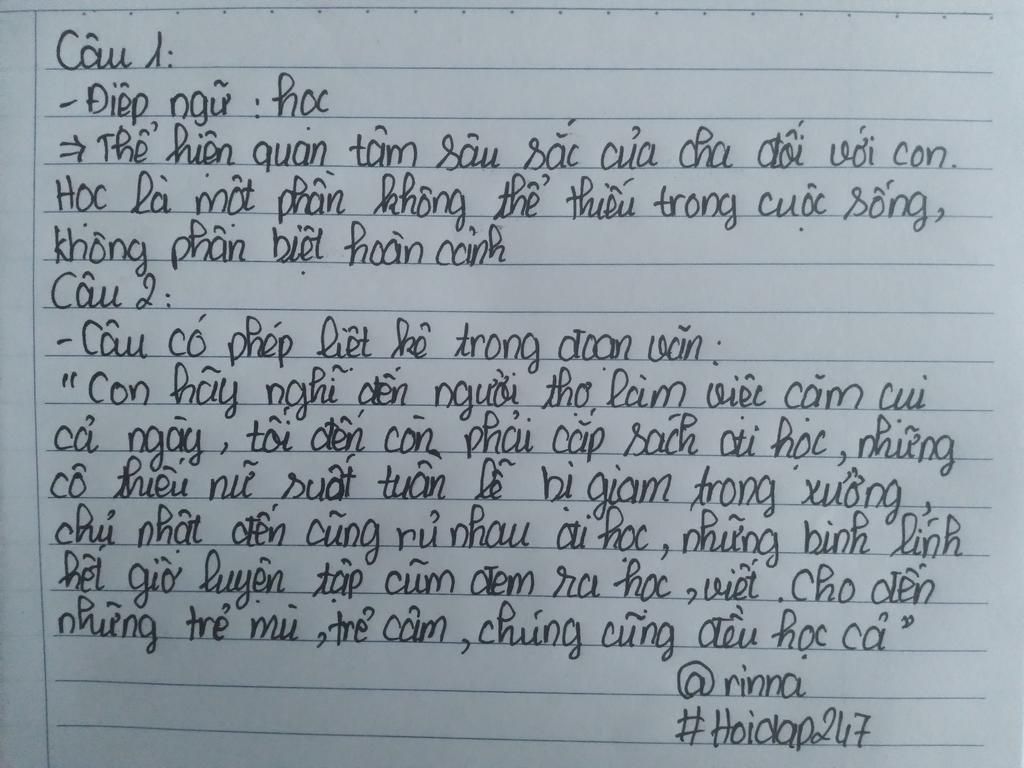 Câu 1:
- Điệp ngữ : học
⇒ Thể hiện quan tâm sâu sắc của cha đối với con.
Học là một phần không thể thiếu trong cuộc sống,
không phân biệt hoàn cảnh
Câu 2:
- Câu có phép liệt kê trong đoạn văn:
"Con hãy nghĩ đến người thợ làm việc cặm cụi
cả ngày, tối đến còn phải cắp sách đi học, những
cô thiếu nữ suất tuần lễ bị giam trong xưởng,
chủ nhật đến cũng rủ nhau đi học, những binh lính
hết giờ luyện tập cũm đem ra học, viết. Cho đến
những trẻ mù, trẻ câm, chúng cũng đều học cả"
@rinna
#Hoidap247